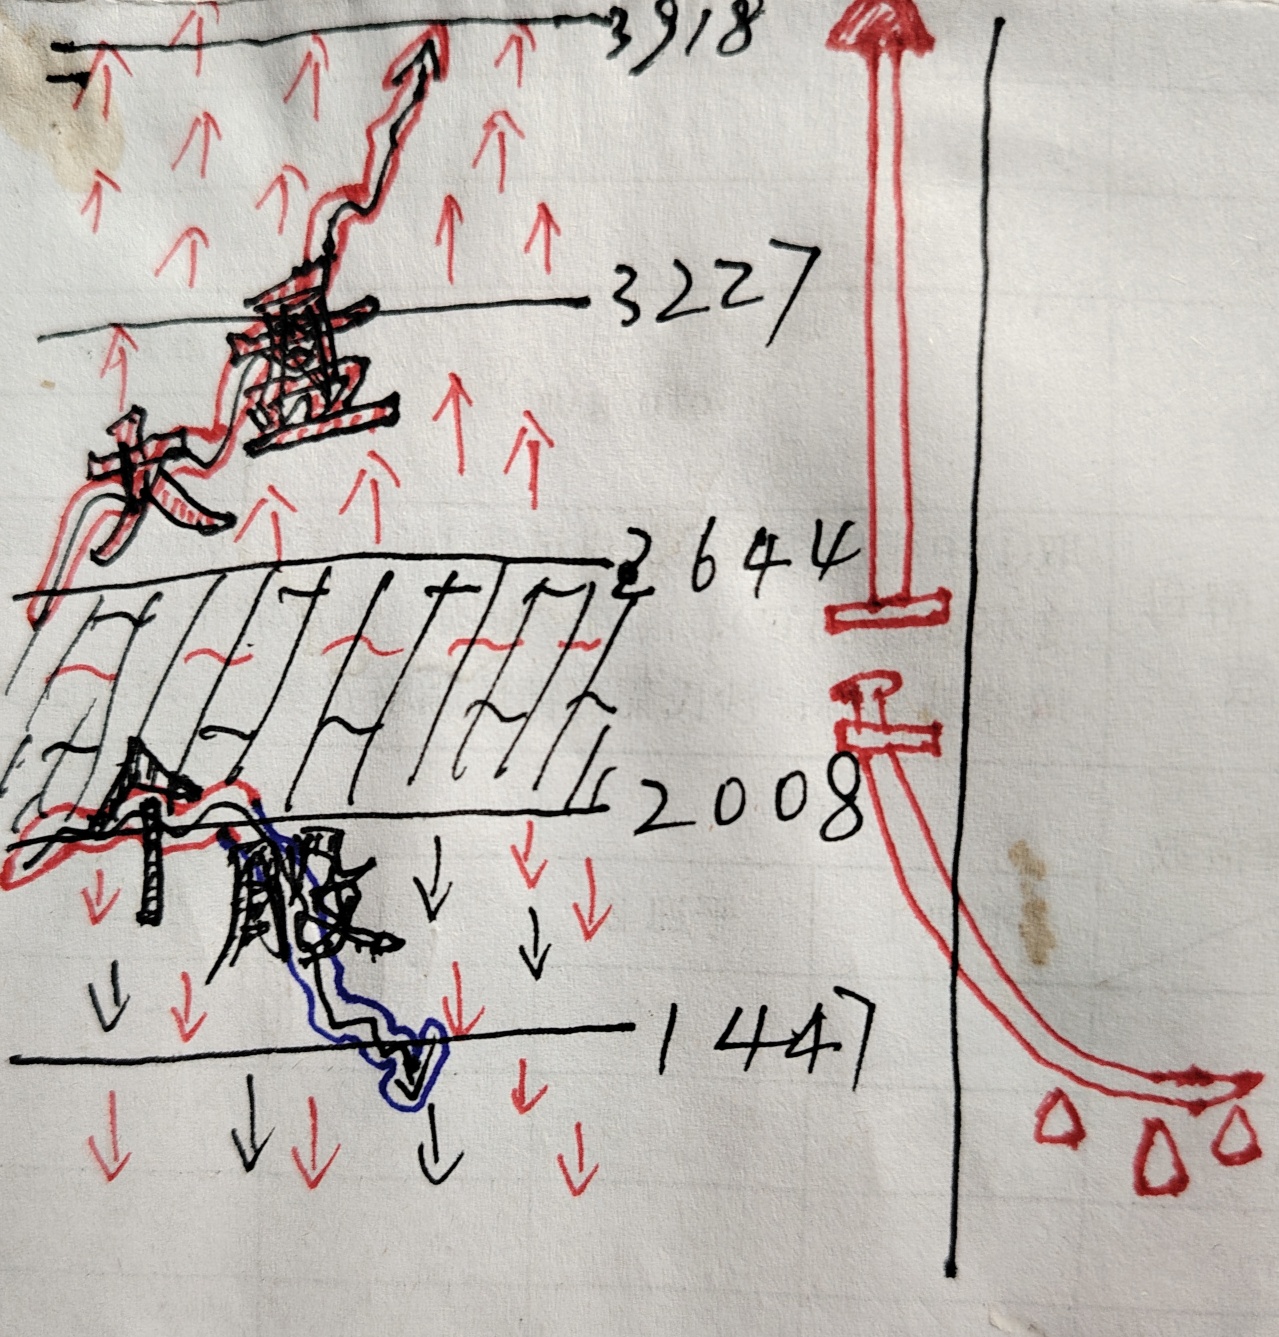 3918
3227
大盘
2644
2008
个股
1447